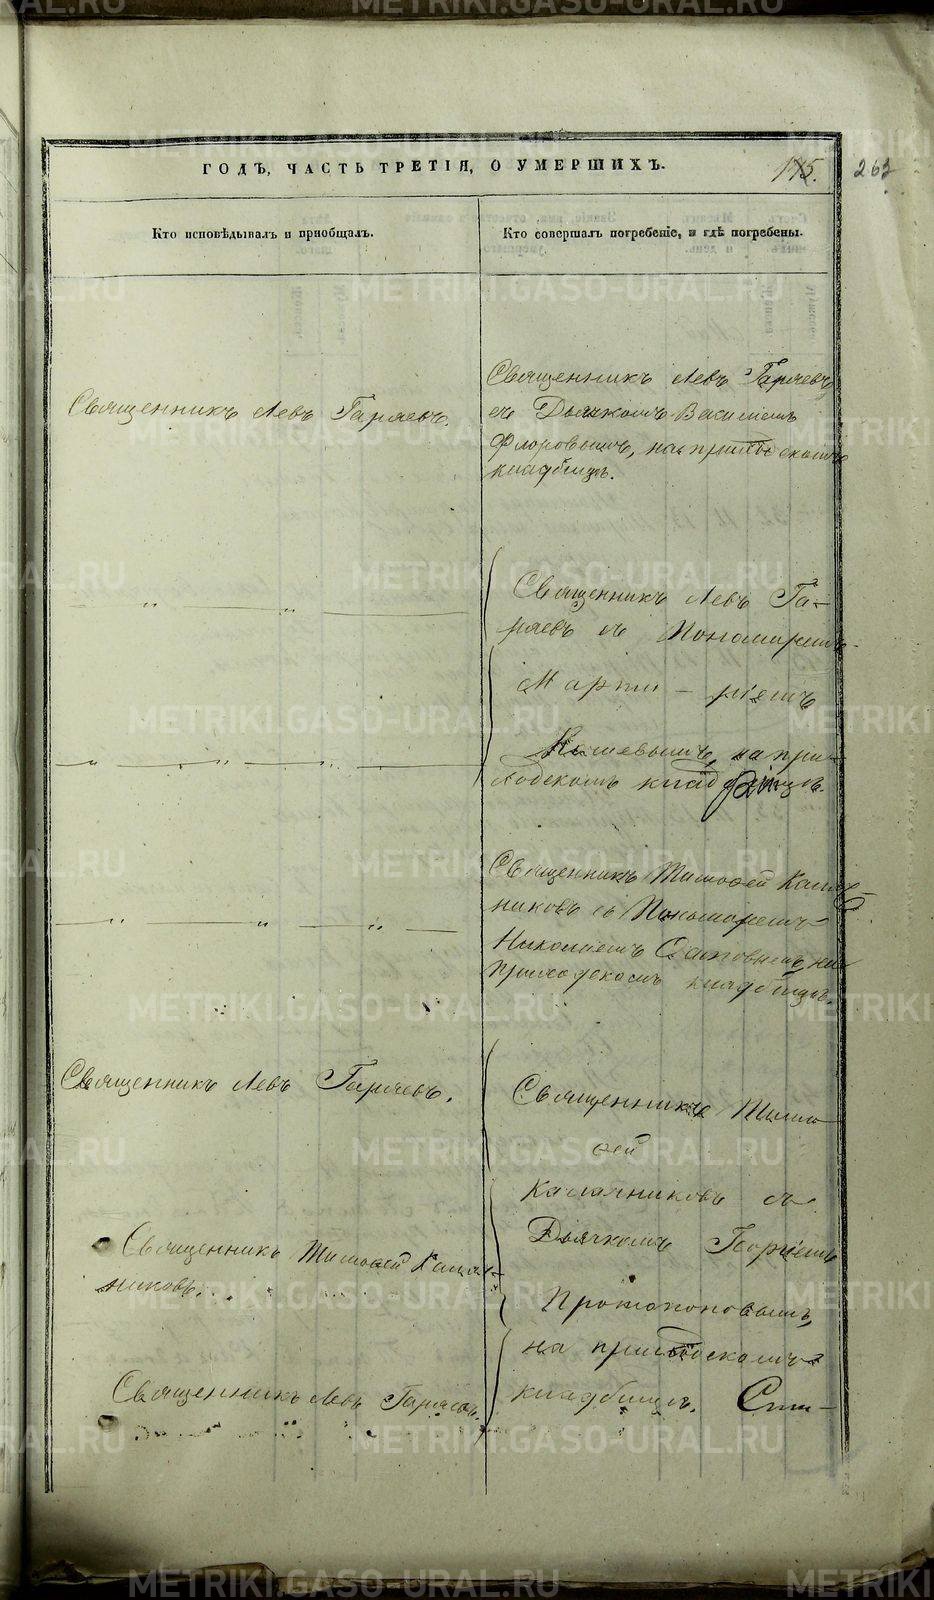 ГОДЪ, ЧАСТЬ ТРЕТІЯ, О УМЕРШИХЪ.
115.
263
Кто исповѣдывалъ и пріобщалъ.
Кто совершалъ погребеніе, и гдѣ погребены.
Священникъ Левъ Гаряевъ.
Священникъ Левъ Гаряевъ
съ Дьячкомъ Василіемъ
Флоровымъ, на приходскомъ
кладбищѣ.
Священникъ Левъ Га-
ряевъ съ Пономаремъ
на при-
ходскомъ кладбищѣ.
Священникъ Тимоѳей Калач-
никовъ съ Пономаремъ
Николаемъ на
приходскомъ кладбищѣ.
Священникъ Левъ Гаряевъ.
Священникъ Тимо-
ѳей
Калачниковъ съ
Дьячкомъ Георгіемъ
Протопоповымъ,
на приходскомъ
кладбищѣ.
Священникъ Тимоѳей Калач-
никовъ.
Священникъ Левъ Гаряевъ.
METRIKI.GASO-URAL.RU